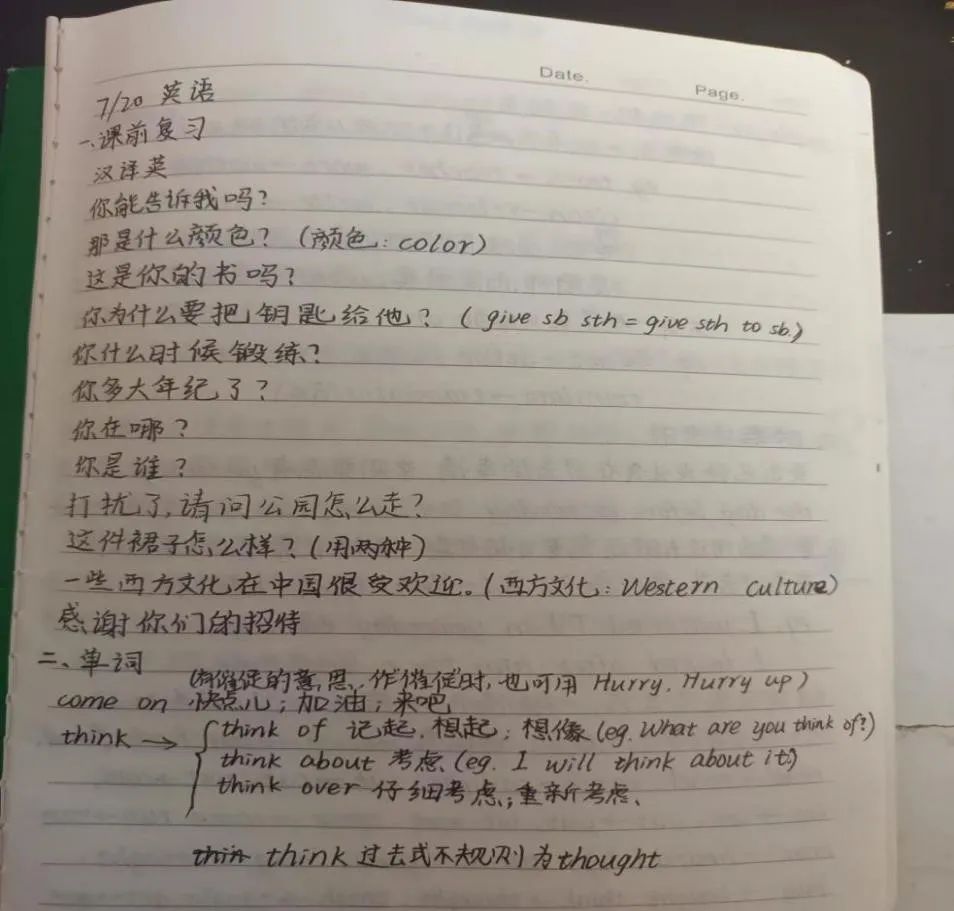 Date.
Page.
7/20 英语
一、课前复习
汉译英
你能告诉我吗?
那是什么颜色? (颜色: color)
这是你的书吗?
你为什么要把钥匙给他? (give sb sth = give sth to sb.)
你什么时候锻练?
你多大年纪了?
你在哪?
你是谁?
打扰了,请问公园怎么走?
这件裙子怎么样? (用两种)
一些西方文化在中国很受欢迎。(西方文化: Western culture)
感谢你们的招待
二、单词
(有催促的意思,作催促时,也可用 Hurry, Hurry up)
come on 快点儿; 加油; 来吧
think → { think of 记起, 想起; 想像 (eg. What are you think of?)
think about 考虑 (eg. I will think about it.)
think over 仔细考虑; 重新考虑、
thin think 过去式不规则为 thought